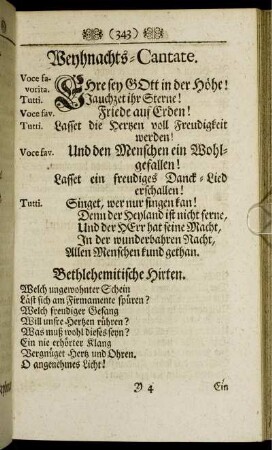 (343)
Weyhnachts-Cantate.
Voce favorita. Ehre sey GOtt in der Höhe!
Tutti. Jauchzet ihr Sterne!
Voce fav. Friede auf Erden!
Tutti. Lasset die Hertzen voll Freudigkeit
werden!
Voce fav. Und den Menschen ein Wohl-
gefallen!
Lasset ein freudiges Danck-Lied
erschallen!
Tutti. Singet, wer nur singen kan!
Denn der Heyland ist nicht ferne,
Und der HErr hat seine Macht,
In der wunderbahren Nacht,
Allen Menschen kund gethan.
Bethlehemitische Hirten.
Welch ungewohnter Schein
Läst sich am Firmamente spüren?
Welch freudiger Gesang
Will unsre Hertzen rühren?
Was muß wohl dieses seyn?
Ein nie erhörter Klang
Vergnüget Hertz und Ohren.
O angenehmes Licht!
Y 4 Ein